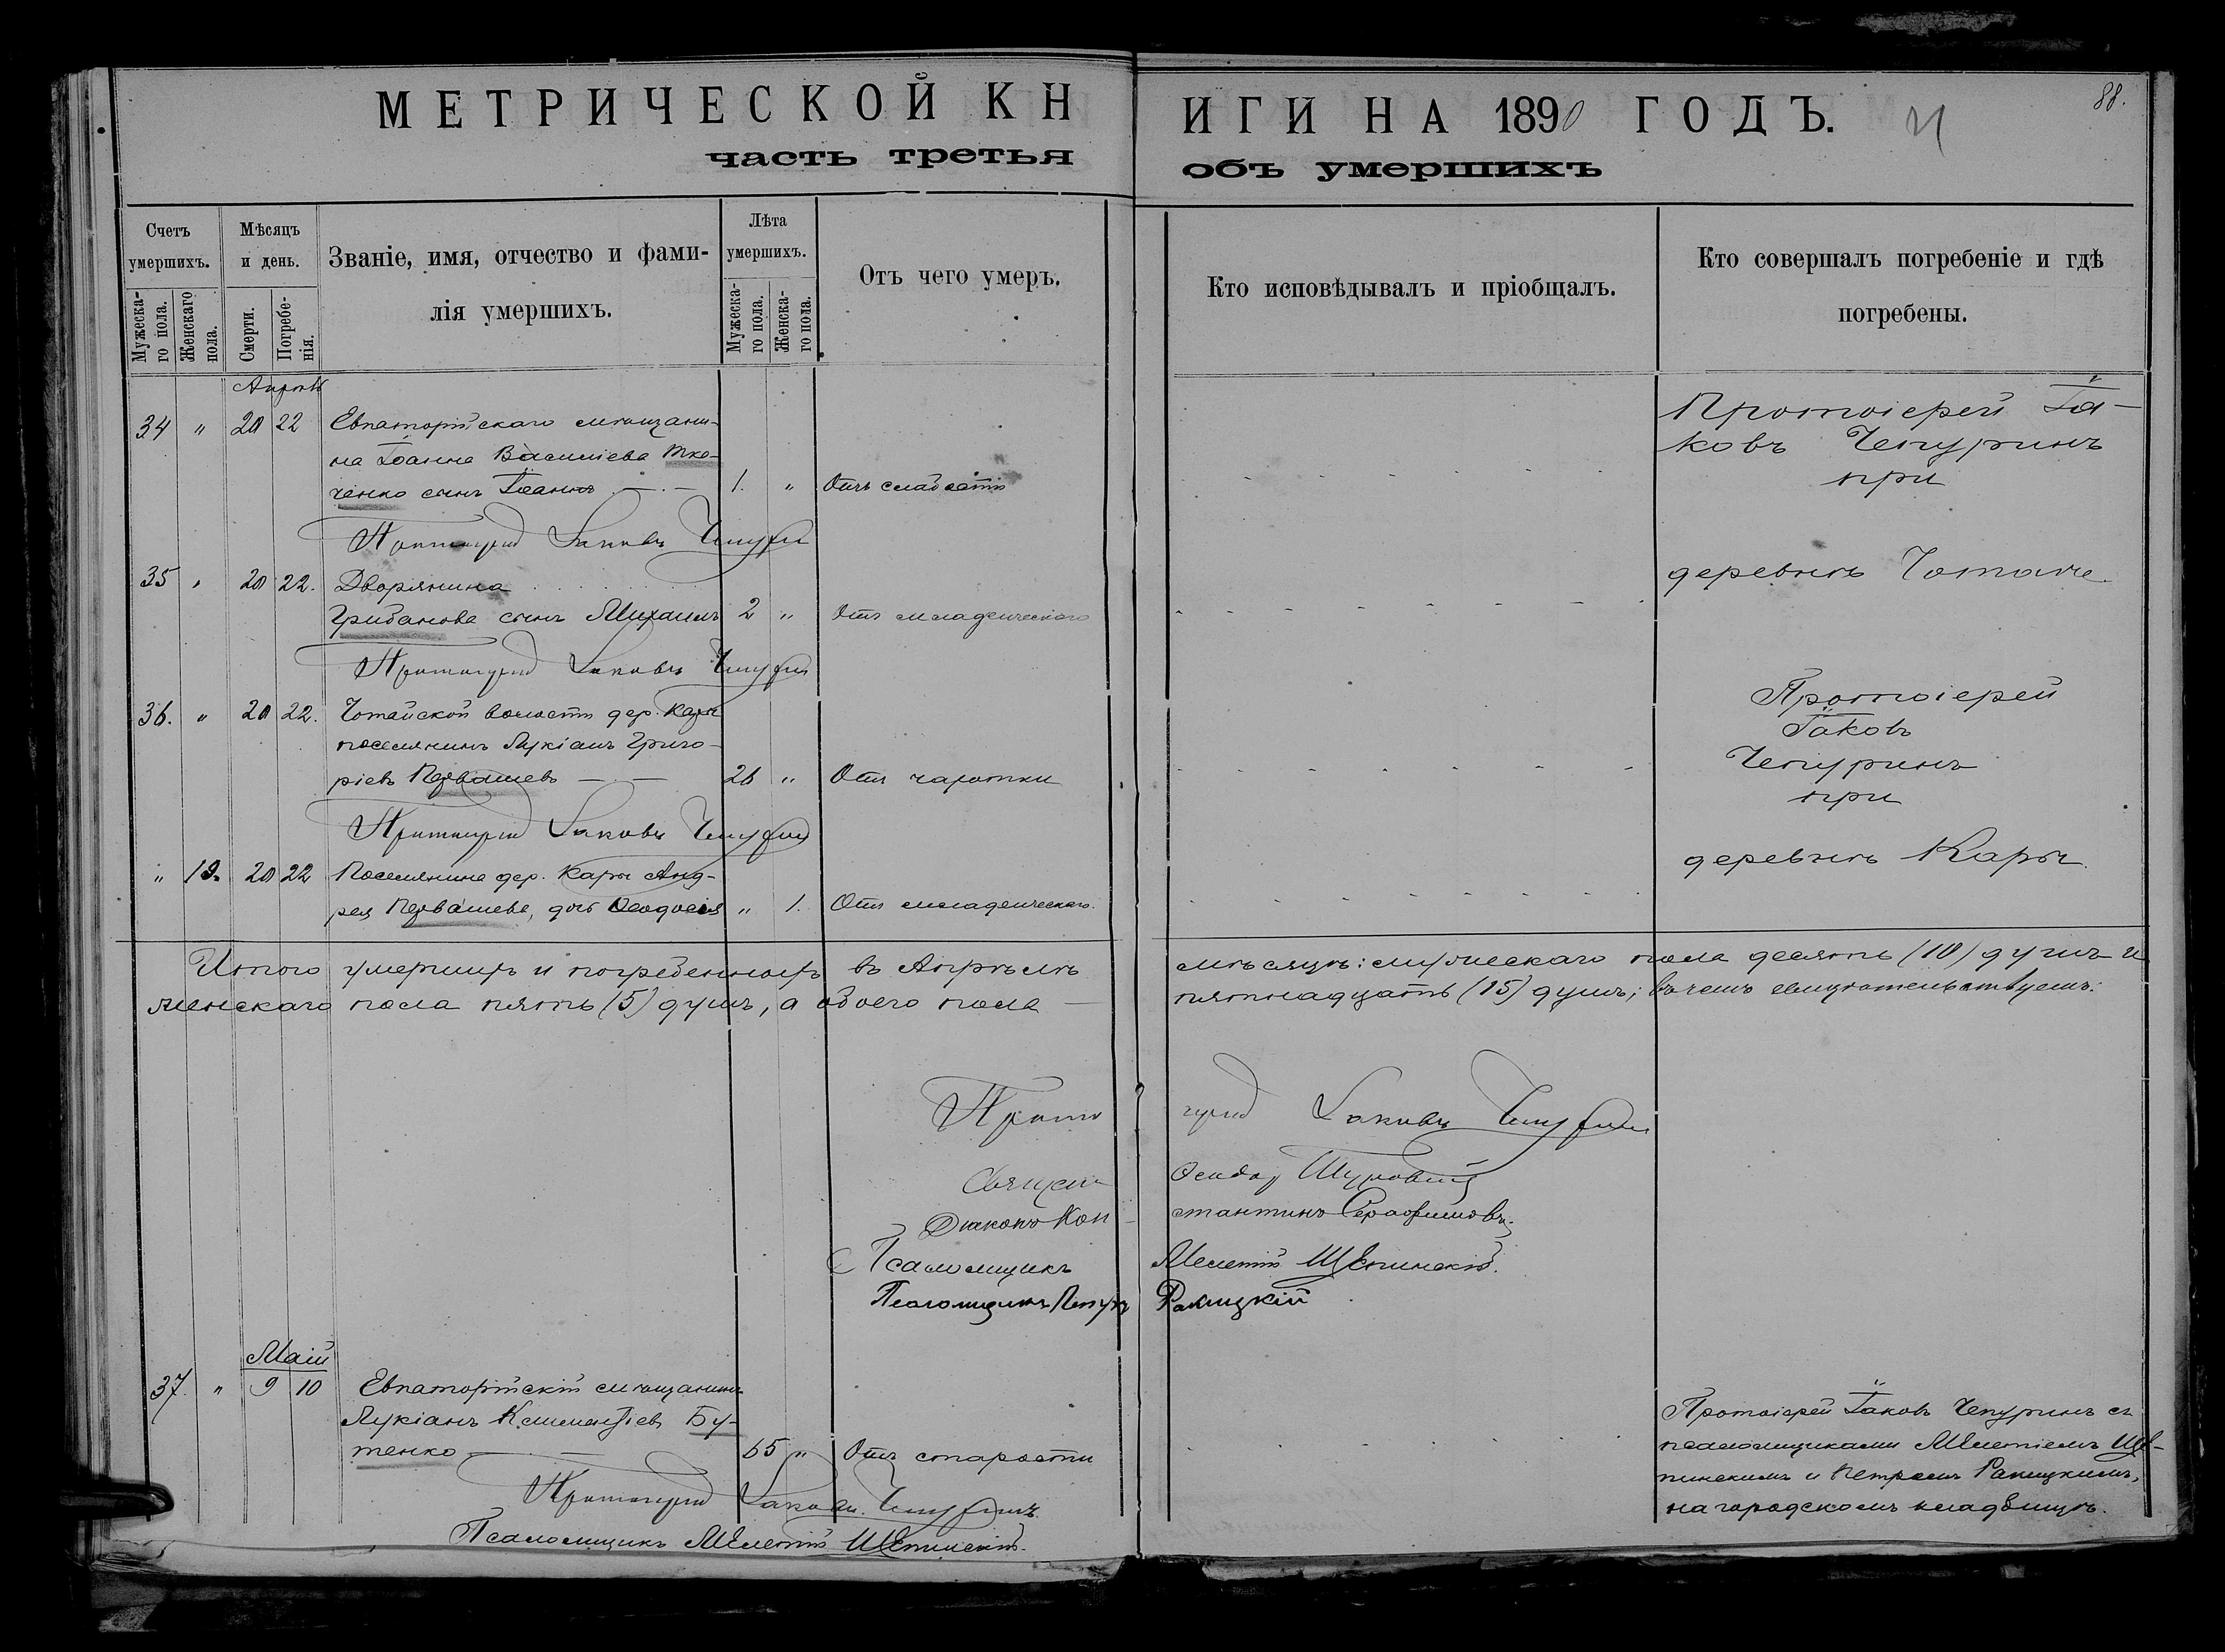 МЕТРИЧЕСКОЙ КН
ИГИ НА 1890 ГОДЪ.
88.
часть третья
объ умершихъ
Счетъ умершихъ.
Мужескаго пола.
Женскаго пола.
Мѣсяцъ и день.
Смерти.
Погребенія.
Званіе, имя, отчество и фами-
лія умершихъ.
Лѣта умершихъ.
Мужеска-
го пола.
Женска-
го пола.
Отъ чего умеръ.
Кто исповѣдывалъ и пріобщалъ.
Кто совершалъ погребеніе и гдѣ
погребены.
Апрѣль
34 " 20 22 Евпаторійскаго мѣщани-
на Іоанна Василіева Тка-
ченко сынъ Іоаннъ 1. " Отъ слабости
Протоіерей Іа-
ковъ Чепуринъ
при
деревнѣ Чотаче.
Протоіерей Іаковъ Чепуринъ
35 " 20 22. Дворянина
Грибанова сынъ Михаилъ 2 " Отъ младенческаго
Протоіерей Іаковъ Чепуринъ
36. " 20 22. Чотайской волости дер. Кары
поселянинъ Лукіанъ Григо-
ріевъ 26 " Отъ чахотки
Протоіерей
Іаковъ
Чепуринъ
при
деревнѣ Кары.
Протоіерей Іаковъ Чепуринъ
" 19. 20 22 Поселянина дер. Кары Анд-
рея дочь Ѳеодосія " 1. Отъ младенческаго.
Итого умершихъ и погребенныхъ въ Апрѣлѣ мѣсяцѣ: мужескаго пола десять (10) душъ и
женскаго пола пять (5) душъ, а обоего пола — пятнадцать (15) душъ; въ чемъ свидѣтельствуемъ:
Протоіерей Іаковъ Чепуринъ
Священ Ѳеодор
Діаконъ Константинъ Серафимовъ.
Псаломщикъ Мелетій Щепинскій.
Псаломщикъ Петръ Ракицкій
Май
37. " 9 10 Евпаторійскій мѣщанинъ
Лукіанъ Климентіевъ Бу-
тенко 65 " Отъ старости
Протоіерей Іаковъ Чепуринъ съ
псаломщиками Мелетіемъ Ще-
пинскимъ и Петромъ Ракицкимъ,
на городскомъ кладбищѣ.
Протоіерей Іаковъ Чепуринъ.
Псаломщикъ Мелетій Щепинскій.